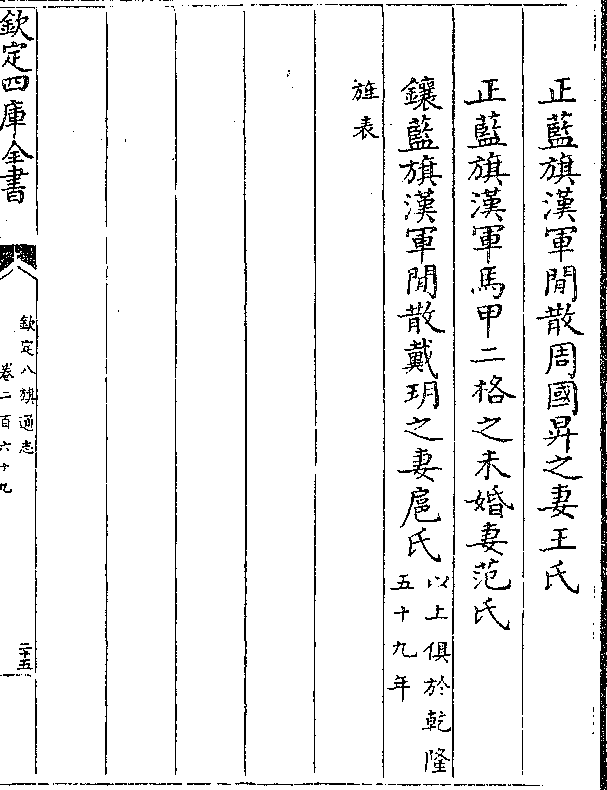 正藍旗漢軍閒散周國昇之妻王氏
正藍旗漢軍馬甲二格之未婚妻范氏
鑲藍旗漢軍閒散戴玥之妻扈氏
以上俱於乾隆
五十九年
旌表
欽定四庫全書
欽定八旗通志
卷二百六十九
二十五